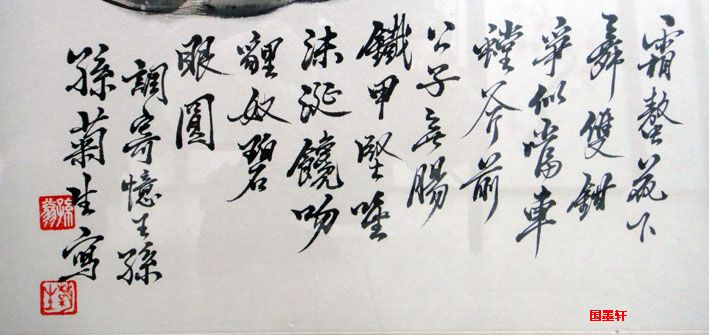 霜螯菰下
舞雙鉗
爭似擋車
螳斧前
公子無腸
鐵甲堅唾
沫涎饞吻
貍奴碧
眼圓
調寄憶王孫
孫菊生寫
国墨轩